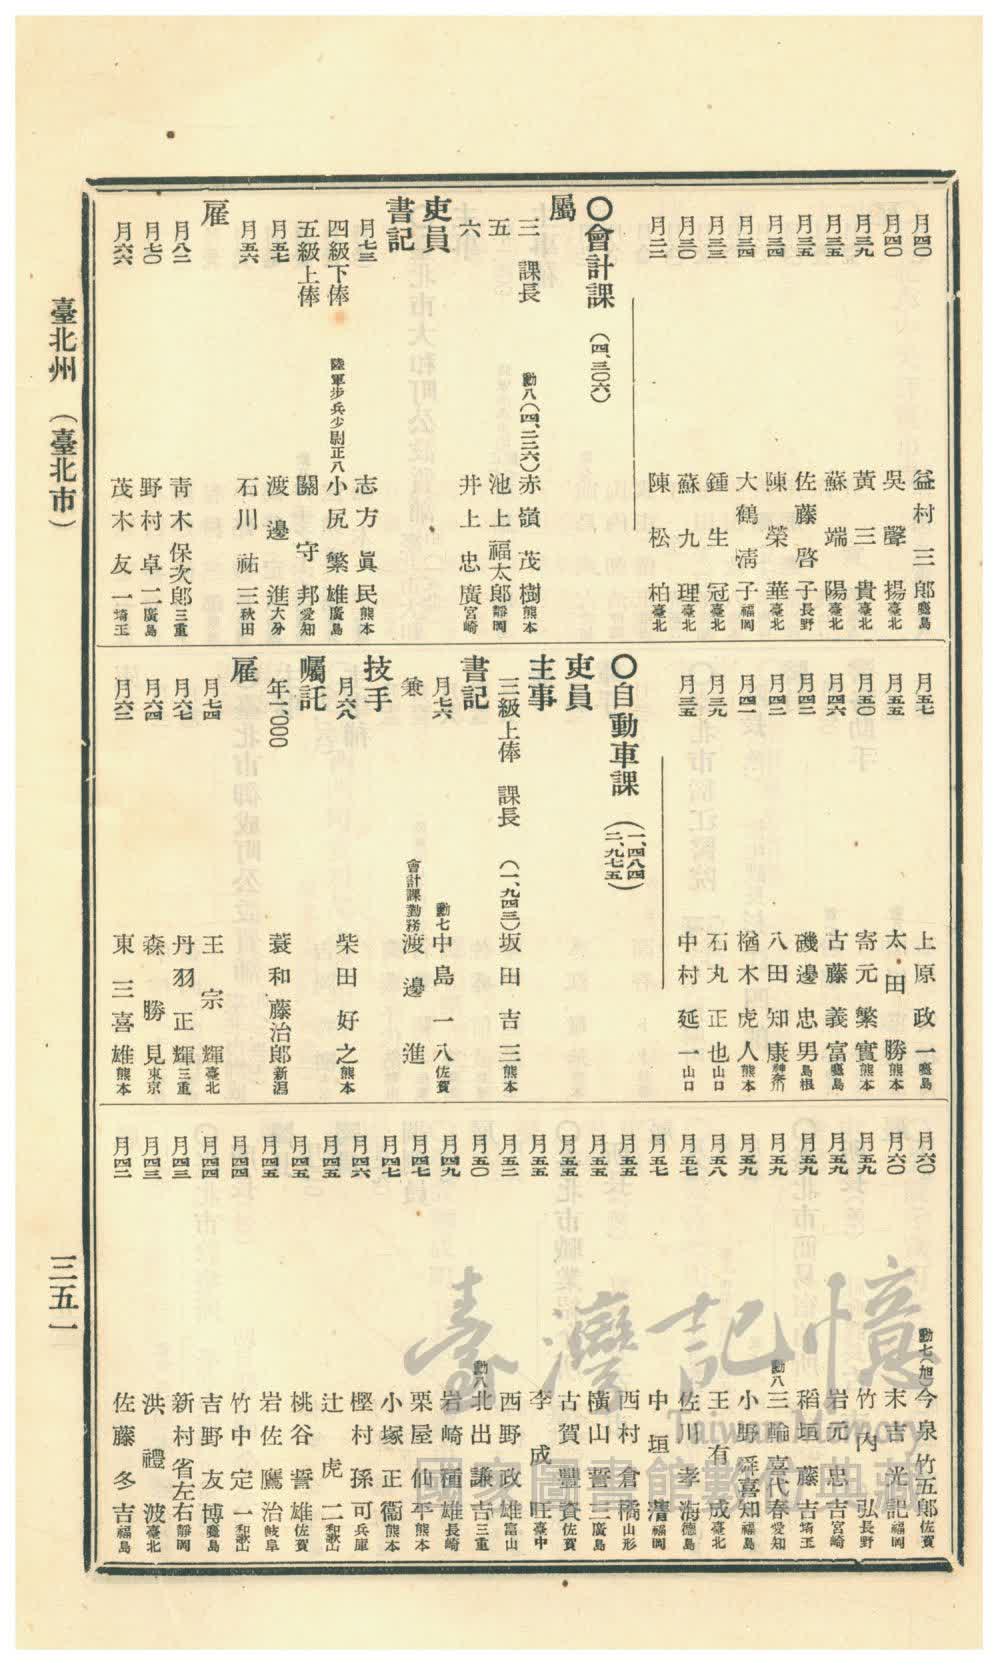 月四〇 益村三郎 鹿兒島
月四〇 吳聲揚 臺北
月三九 黃三貴 臺北
月三五 蘇端陽 臺北
月三五 佐藤啓子 長野
月三四 陳榮華 臺北
月三四 大鶴淸子 福岡
月三三 鍾生冠 臺北
月三〇 蘇九理 臺北
月二二 陳松柏 臺北
〇會計課 (四、三〇六)
屬
三 課長 勳八(四、二三六) 赤嶺茂樹 熊本
五 池上福太郎 靜岡
六 井上忠廣 宮崎
吏員
書記
月七三 志方眞民 熊本
四級下俸 陸軍步兵少尉正八 小尻繁雄 廣島
五級上俸 關守邦 愛知
月五七 渡邊進 大分
月五六 石川祐三 秋田
雇
月八二 靑木保次郎 三重
月七〇 野村卓二 廣島
月六六 茂木友一 埼玉
月五七 上原政一 鹿兒島
月五五 太田勝 熊本
月五〇 寄元繁實 熊本
月四六 古藤義富 鹿兒島
月四二 磯邊忠男 島根
月四二 八田知康 神奈川
月四二 楢木虎人 熊本
月三九 石丸正也 山口
月三五 中村延一 山口
〇自動車課 (一、四八四 二、九七五)
吏員
主事
三級上俸 課長 (一、九四三) 坂田吉三 熊本
書記
月七六 勳七 中島一八 佐賀
兼 會計課勤務 渡邊進
技手
月六八 柴田好之 熊本
囑託
年二、〇〇〇 蓑和藤治郎 新潟
雇
月七四 王宗輝 臺北
月六七 丹羽正輝 三重
月六四 森勝見 東京
月六二 東三喜雄 熊本
月六〇 勳七(旭) 今泉竹五郎 佐賀
月六〇 末吉光記 福岡
月五九 竹內弘 長野
月五九 岩元忠吉 宮崎
月五九 稻垣藤吉 埼玉
月五九 勳八 三輪喜代春 愛知
月五九 小野舜喜知 福島
月五八 王有成 臺北
月五七 佐川孝海 德島
月五七 中垣淸 福岡
月五五 西村倉橘 山形
月五五 橫山誓三 廣島
月五五 古賀豐資 佐賀
月五五 李成旺 臺中
月五二 西野政雄 富山
月五〇 勳八 北出謙吉 三重
月四九 岩崎種雄 長崎
月四七 栗屋仙平 熊本
月四七 小塚正衞 熊本
月四六 樫村孫可 兵庫
月四五 辻虎二 和歌山
月四四 桃谷誓雄 佐賀
月四五 岩佐鷹治 岐阜
月四四 竹中定一 和歌山
月四四 吉野友博 鹿兒島
月四三 新村省左右 靜岡
月四三 洪禮波 臺北
月四二 佐藤多吉 福島
臺北州 (臺北市)
三五一
臺灣記憶
Taiwan Memory
國家圖書館數位典藏